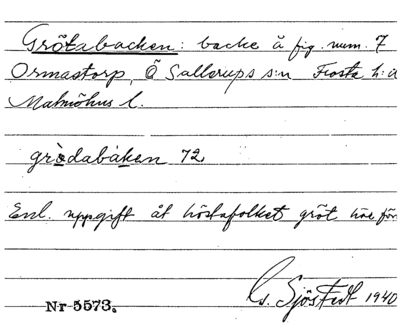 Grötabacken: backe å fig. num. 7
Ormastorp, Ö Sallerups s:n Frosta h:d
Malmöhus l.
gròdabàken 72
Enl. uppgift åt höstafolket gröt
Gs. Sjöstedt 1940
Nr 5573.